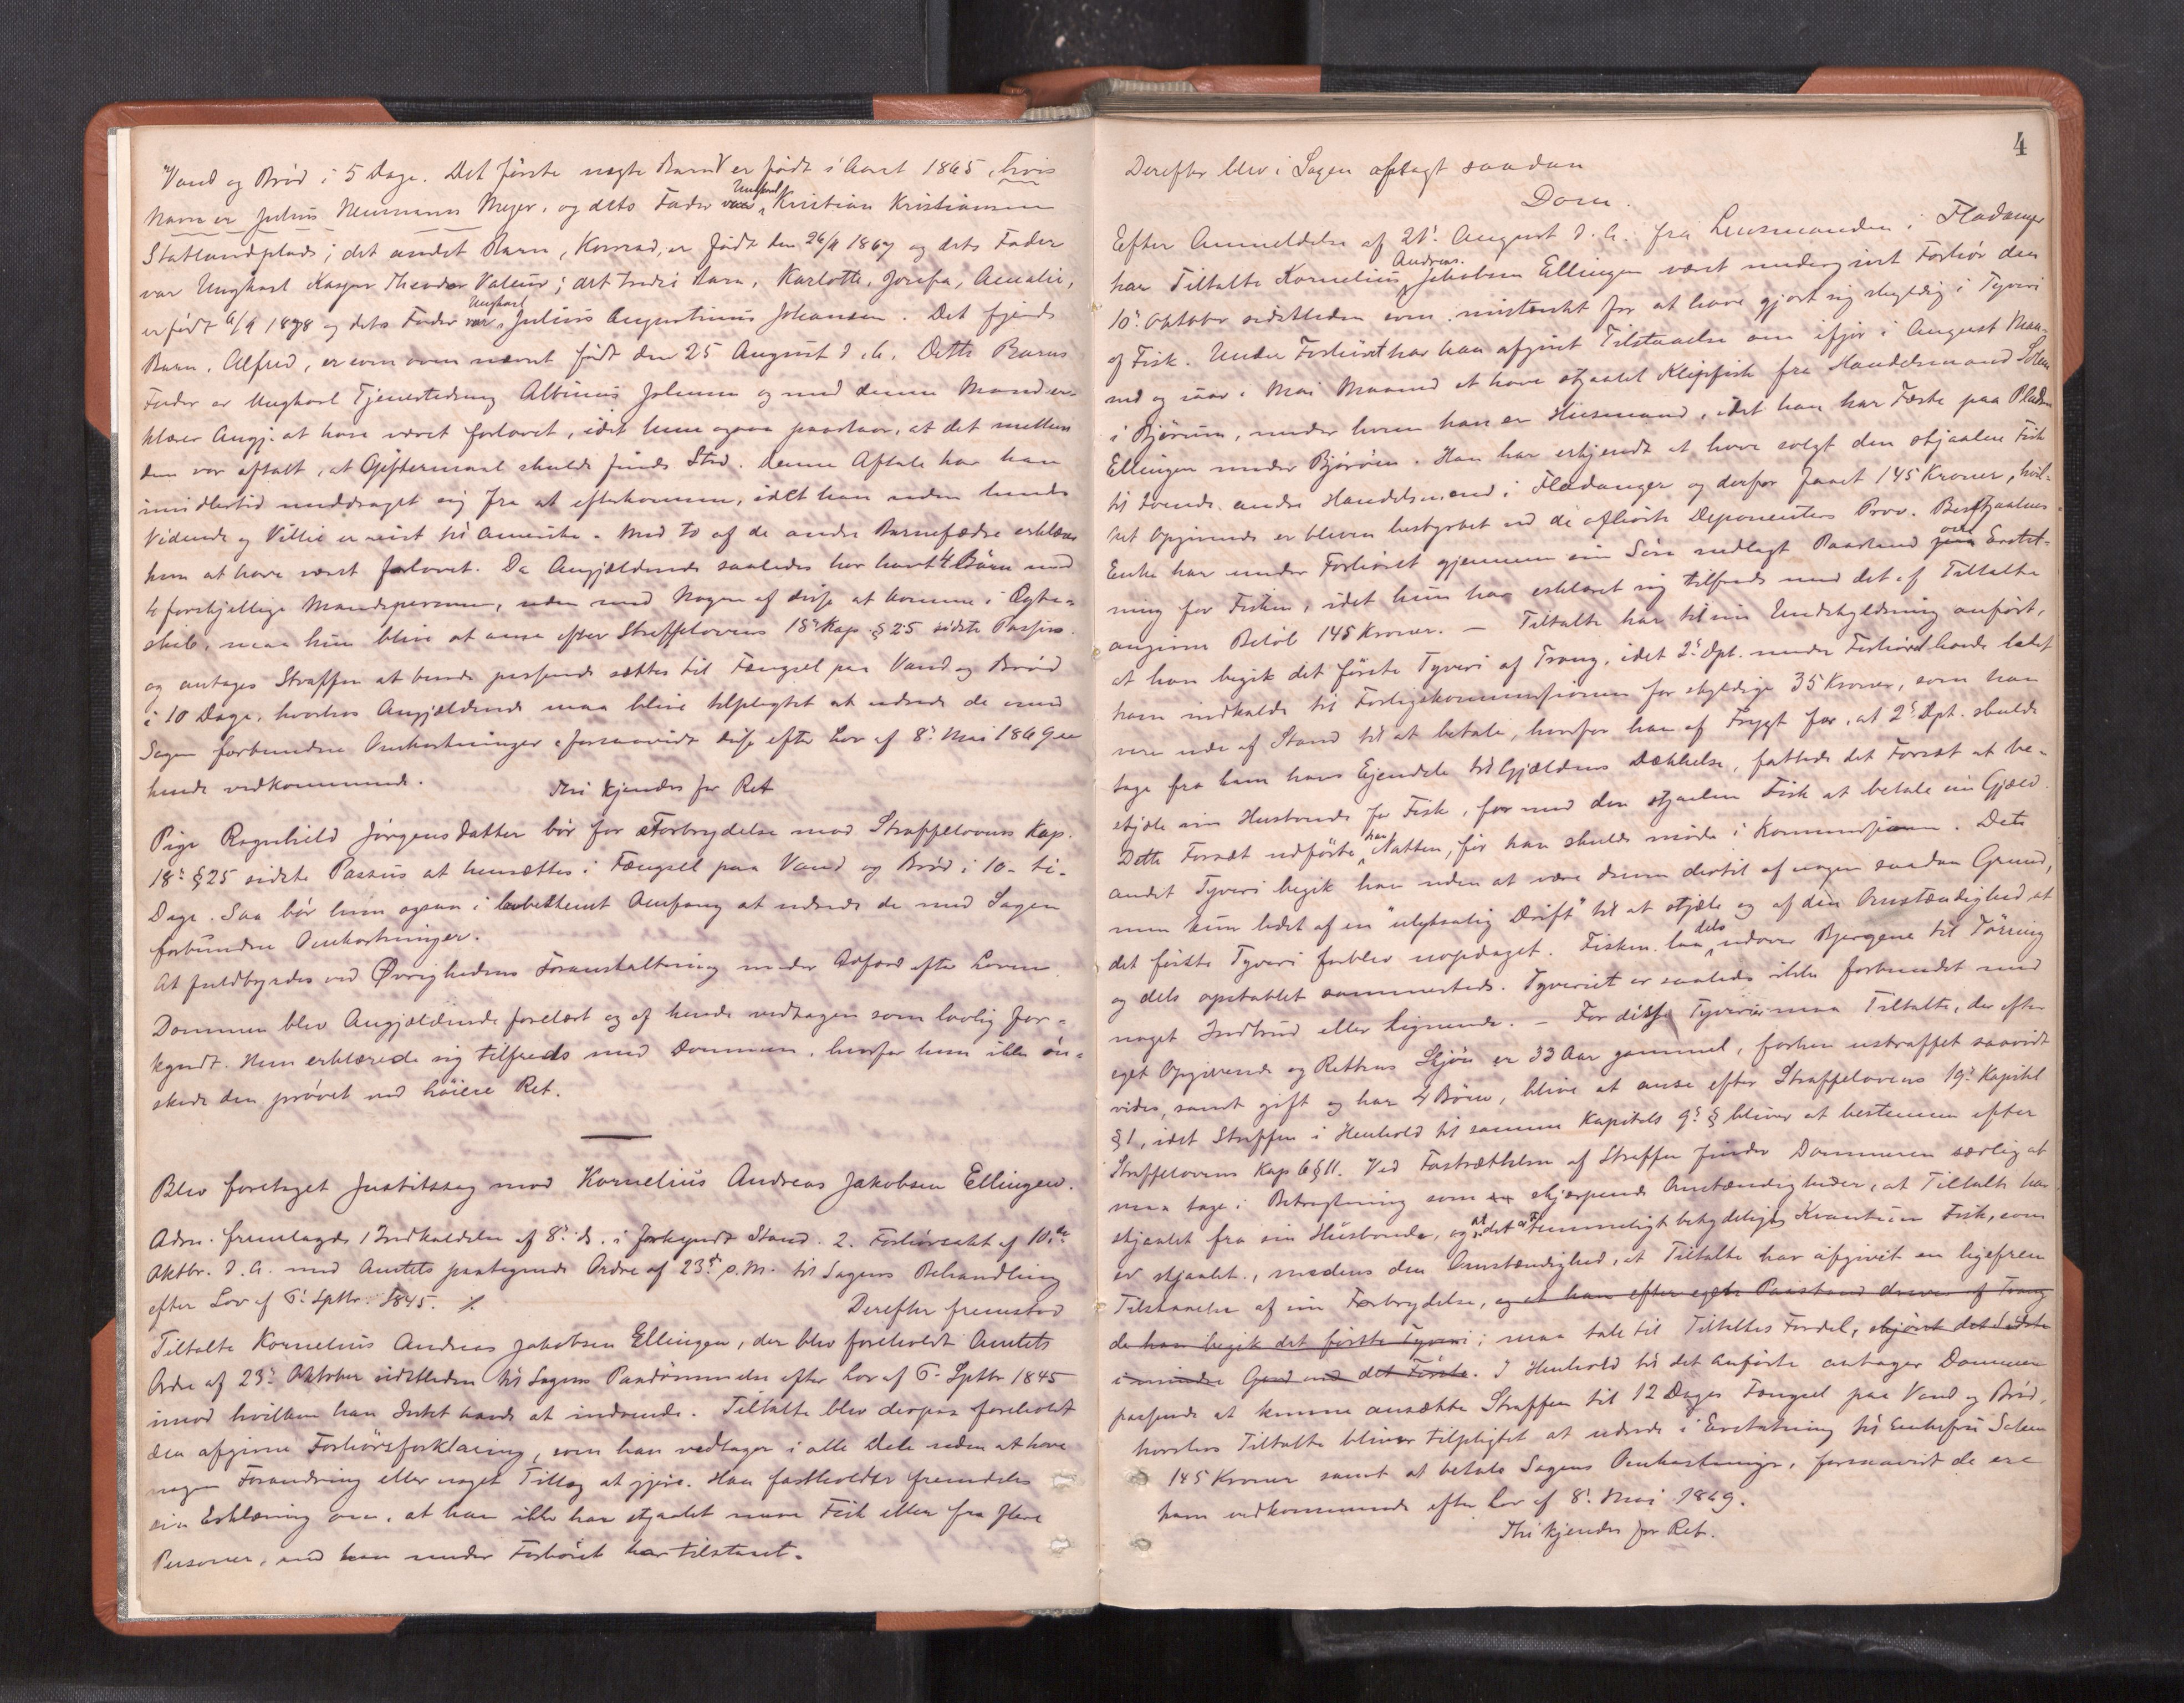 Vand og Brød i 5 Dage. Det første uægte Barn er født i Aaret 1865, hvis
Navn er Julius Neumann Meyer, og dets Fader var Ungkarl Kristian Kristiansen
Statlandplads; det andet Barn, Konrad, er født den 26/4 1867 og dets Fader
var Ungkarl Kasper Theodor Valeur; det tredie Barn, Karlotte, Josefa, Amalie,
er født 6/9 1878 og dets Fader var Ungkarl Julius Augustinus Johansen. Det fjerde
Barn, Alfred, er som oven nævnt født den 25 August d. A. Dette Barns
Fader er Ungkarl Tjenestedreng Albinus Johnsen og med denne Mand er-
klærer Angj. at have været forlovet, idet hun ogsaa paastaar, at det mellem
dem var aftalt, at Giftermaal skulde finde Sted. Denne Aftale har han
imidlertid unddraget sig fra at efterkomme, idet han uden hendes
Vidende og Villie er reist til Amerika. Med to af de andre Barnefædre erklærer
hun at have været forlovet. Da Angjældende saaledes har havt 4 Børn med
4 forskjellige Mandspersoner, uden med Nogen af disse at komme i Ægte-
skab, maa hun blive at anse efter Straffelovens 18de Kap. § 25 sidste Passus
og antages Straffen at burde passende sættes til Fængsel paa Vand og Brød
i 10 Dage, hvorhos Angjældende maa blive tilpligtet at udrede de med
Sagen forbundne Omkostninger, forsaavidt disse efter Lov af 8de Mai 1869 ere
hende vedkommende.
Thi kjendes for Ret
Pige Ragnhild Jørgensdatter bør for Forbrydelse mod Straffelovens Kap.
18de § 25 sidste Passus at hensættes i Fængsel paa Vand og Brød i 10 - ti -
Dage. Saa bør hun ogsaa i lovbestemt Omfang at udrede de med Sagen
forbundne Omkostninger.
At fuldbyrdes ved Øvrighedens Foranstaltning under Adfærd efter Loven.
Dommen blev Angjældende forelæst og af hende vedtagen som lovlig for-
kyndt. Hun erklærede sig tilfreds med Dommen, hvorfor hun ikke øn-
skede den prøvet ved høiere Ret.
Blev foretaget Justitssag mod Kornelius Andreas Jakobsen Ellingen.
Adm. fremlagde 1 Indkaldelse af 8de ds. i forkyndt Stand. 2. Forhørsakt af 10de
Oktbr. d. A. med Amtets paategnede Ordre af 23de s.M. til Sagens Behandling
efter Lov af 6te Septbr. 1845. ⁒ Derefter fremstod
Tiltalte Kornelius Andreas Jakobsen Ellingen, der blev foreholdt Amtets
Ordre af 23de Oktober sidstleden til Sagens Paadømmelse efter Lov af 6te Septbr 1845
imod hvilken han Intet havde at indvende. Tiltalte blev derpaa foreholdt
den afgivne Forhørsforklaring, som han vedtager i alle Dele uden at have
nogen Forandring eller noget Tillæg at gjøre. Han fastholder fremdeles
sin Erklæring om, at han ikke har stjaalet mere Fisk eller fra flere
Personer, end han under Forhøret har tilstaaet.
4
Derefter blev i Sagen afsagt saadan
Dom.
Efter Anmeldelse af 21de August d. A. fra Lensmanden i Fladanger
har Tiltalte Kornelius Andreas Jakobsen Ellingen været undergivet Forhør den
10de Oktober sidstleden som mistænkt for at have gjort sig skyldig i Tyveri
af Fisk. Under Forhøret har han afgivet Tilstaaelse om ifjor i August Maa-
ned og iaar i Mai Maaned at have stjaalet Klipfisk fra Handelsmand Solem
i Bjørøen, under hvem han er Husmand, idet han har Fæste paa Pladsen
Ellingen under Bjørøen. Han har erkjendt at have solgt den stjaalne Fisk
til tvende andre Handelsmænd i Fladanger og derfor faaet 145 Kroner, hvil-
ket Opgivende er bleven bestyrket ved de afhørte Deponenters Prov. Bestjaalnes
Enke har under Forhøret gjennem sin Søn nedlagt Paastand om Erstat-
ning for Fisken, idet hun har erklæret sig tilfreds med det af Tiltalte
angivne Beløb 145 Kroner. – Tiltalte har til sin Undskyldning anført,
at han begik det første Tyveri af Trang, idet 2den Dpt. under Forhøret havde ladet
ham indkalde til Forligskommissionen for skyldige 35 Kroner, som han
var ude af Stand til at betale, hvorfor han af Frygt for, at 2den Dpt. skulde
tage fra ham hans Eiendele til Gjældens Dækkelse, fattede det Forsæt at be-
stjæle sin Husbonde for Fisk, for med den stjaalne Fisk at betale sin Gjæld.
Dette Forsæt udførte han Natten, før han skulde møde i Kommissionen. Det
andet Tyveri begik han uden at være dreven dertil af nogen saadan Grund,
men kun ledet af en "ulyksalig Drift" til at stjæle og af den Omstændighed at
det første Tyveri forblev uopdaget. Fisken laa dels udover Bjergene til Tørring
og dels opstablet sammesteds. Tyveriet er saaledes ikke forbundet med
noget Indbrud eller Lignende. – For disse Tyverier maa Tiltalte, der efter
eget Opgivende og Rettens Skjøn er 33 Aar gammel, forhen ustraffet saavidt
vides, samt gift og har 4 Børn, blive at anse efter Straffelovens 19de Kapitel
§ 1, idet Straffen i Henhold til samme Kapitels 9de § bliver at bestemme efter
Straffelovens Kap 6 § 11. Ved Fastsættelsen af Straffen finder Dommeren særlig at
maa tage i Betragtning som skjærpende Omstændigheder, at Tiltalte har
stjaalet fra sin Husbonde, og at det er et temmeligt betydeligt Kvantum Fisk, som
er stjaalet, medens den Omstændighed, at Tiltalte har afgivet en ligefrem
Tilstaaelse af sin Forbrydelse, og at han efter egen Paastand dreves af Trang
da han begik det første Tyveri; maa tale til Tiltaltes Fordel, skjønt det Sidste
i mindre Grad end det Første. I Henhold til det Anførte antager Dommeren
passende at kunne ansætte Straffen til 12 Dages Fængsel paa Vand og Brød,
hvorhos Tiltalte bliver tilpligtet at udrede i Erstatning til Enkefru Solem
145 Kroner samt at betale Sagens Omkostninger, forsaavidt de ere
ham vedkommende efter Lov af 8de Mai 1869.
Thi kjendes for Ret.